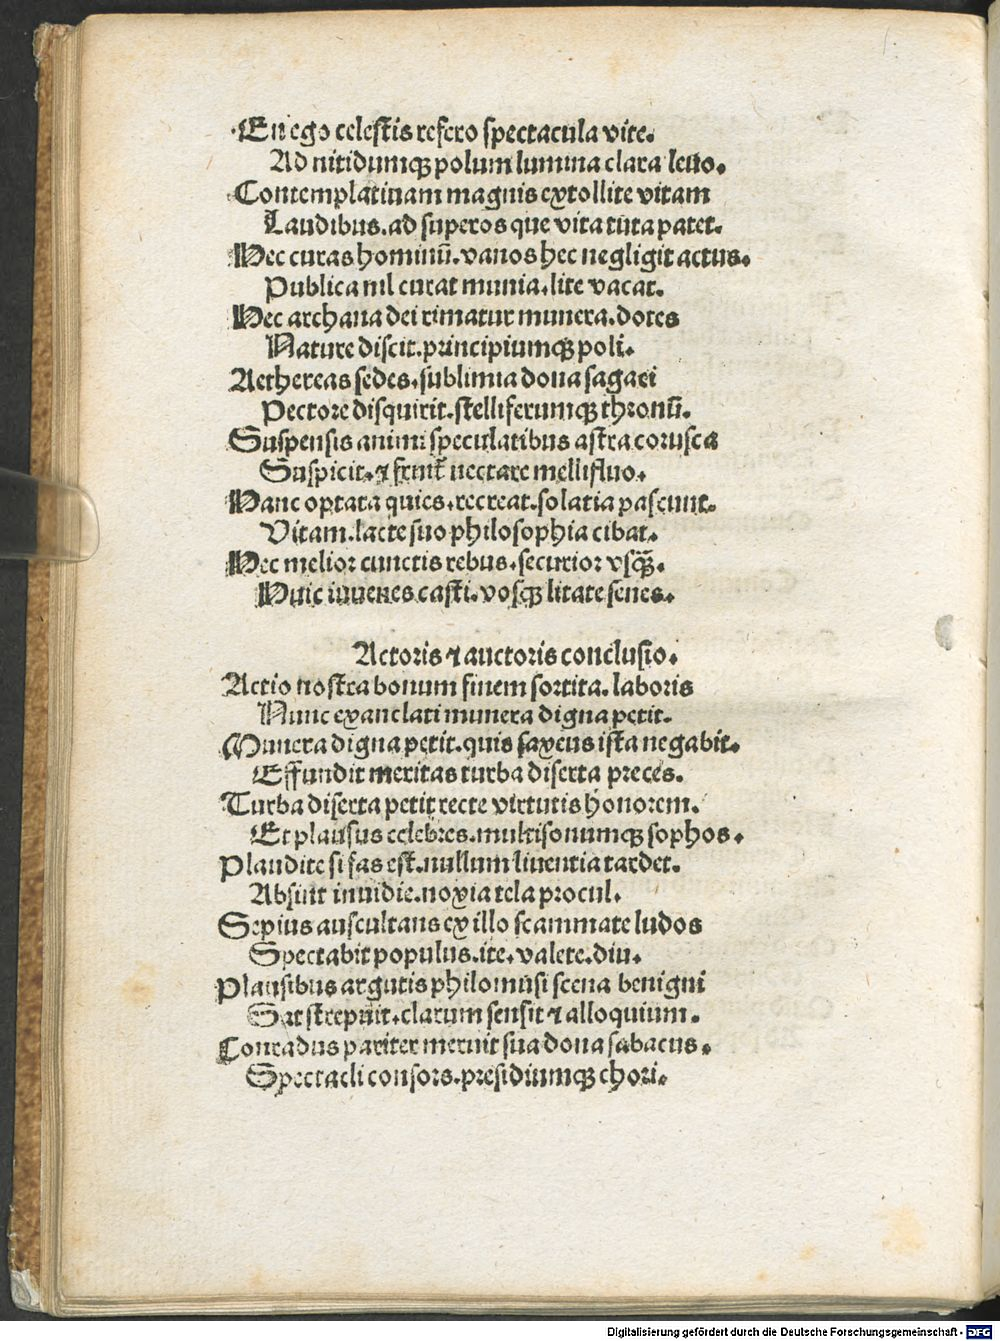 En ego celestis refero spectacula vite.
Ad nitidumqꝫ polum lumina clara leuo.
Contemplatiuam magnis extollite vitam
Laudibus. ad superos que vita tuta patet.
Hec curas hominū. vanos hec negligit actus.
Publica nil curat munia. lite vacat.
Hec archana dei rimatur munera. dotes
Nature discit. principiumqꝫ poli.
Aethereas sedes. sublimia dona sagaci
Pectore disquirit. stelliferumqꝫ thronū.
Suspensis animi speculatibus astra corusca
Suspicit. ⁊ fruit᷑ nectare mellifluo.
Hanc optata quies. recreat. solatia pascunt.
Vitam. lacte suo philosophia cibat.
Hec melior cunctis rebus. securior vsqꝫ̄.
Huic iuuenes casti. vosqꝫ litate senes.
Actoris ⁊ auctoris conclusio.
Actio nostra bonum finem sortita. laboris
Nunc exanclati munera digna petit.
Munera digna petit. quis saxeus ista negabit.
Effundit meritas turba diserta preces.
Turba diserta petit recte virtutis honorem.
Et plausus celebres. multisonumqꝫ sophos.
Plaudite si fas est. nullum liuentia tardet.
Absint inuidie. noxia tela procul.
Sepius auscultans ex illo scammate ludos
Spectabit populus. ite. valete. diu.
Plausibus argutis philomusi scena benigni
Sat strepuit. clarum sensit ⁊ alloquium.
Conradus pariter meruit sua dona sabacus.
Spectacli consors. presidiumqꝫ chori.
Digitalisierung gefördert durch die Deutsche Forschungsgemeinschaft - DFG